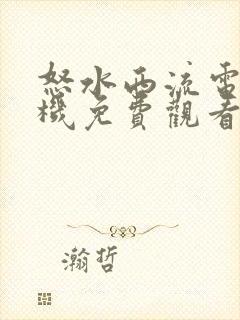 怒水西流電
機免費觀看
瀚哲